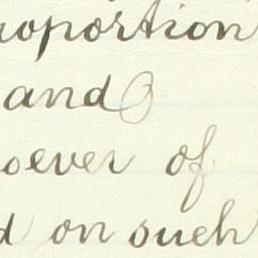 roportion
and
soever of
d on such